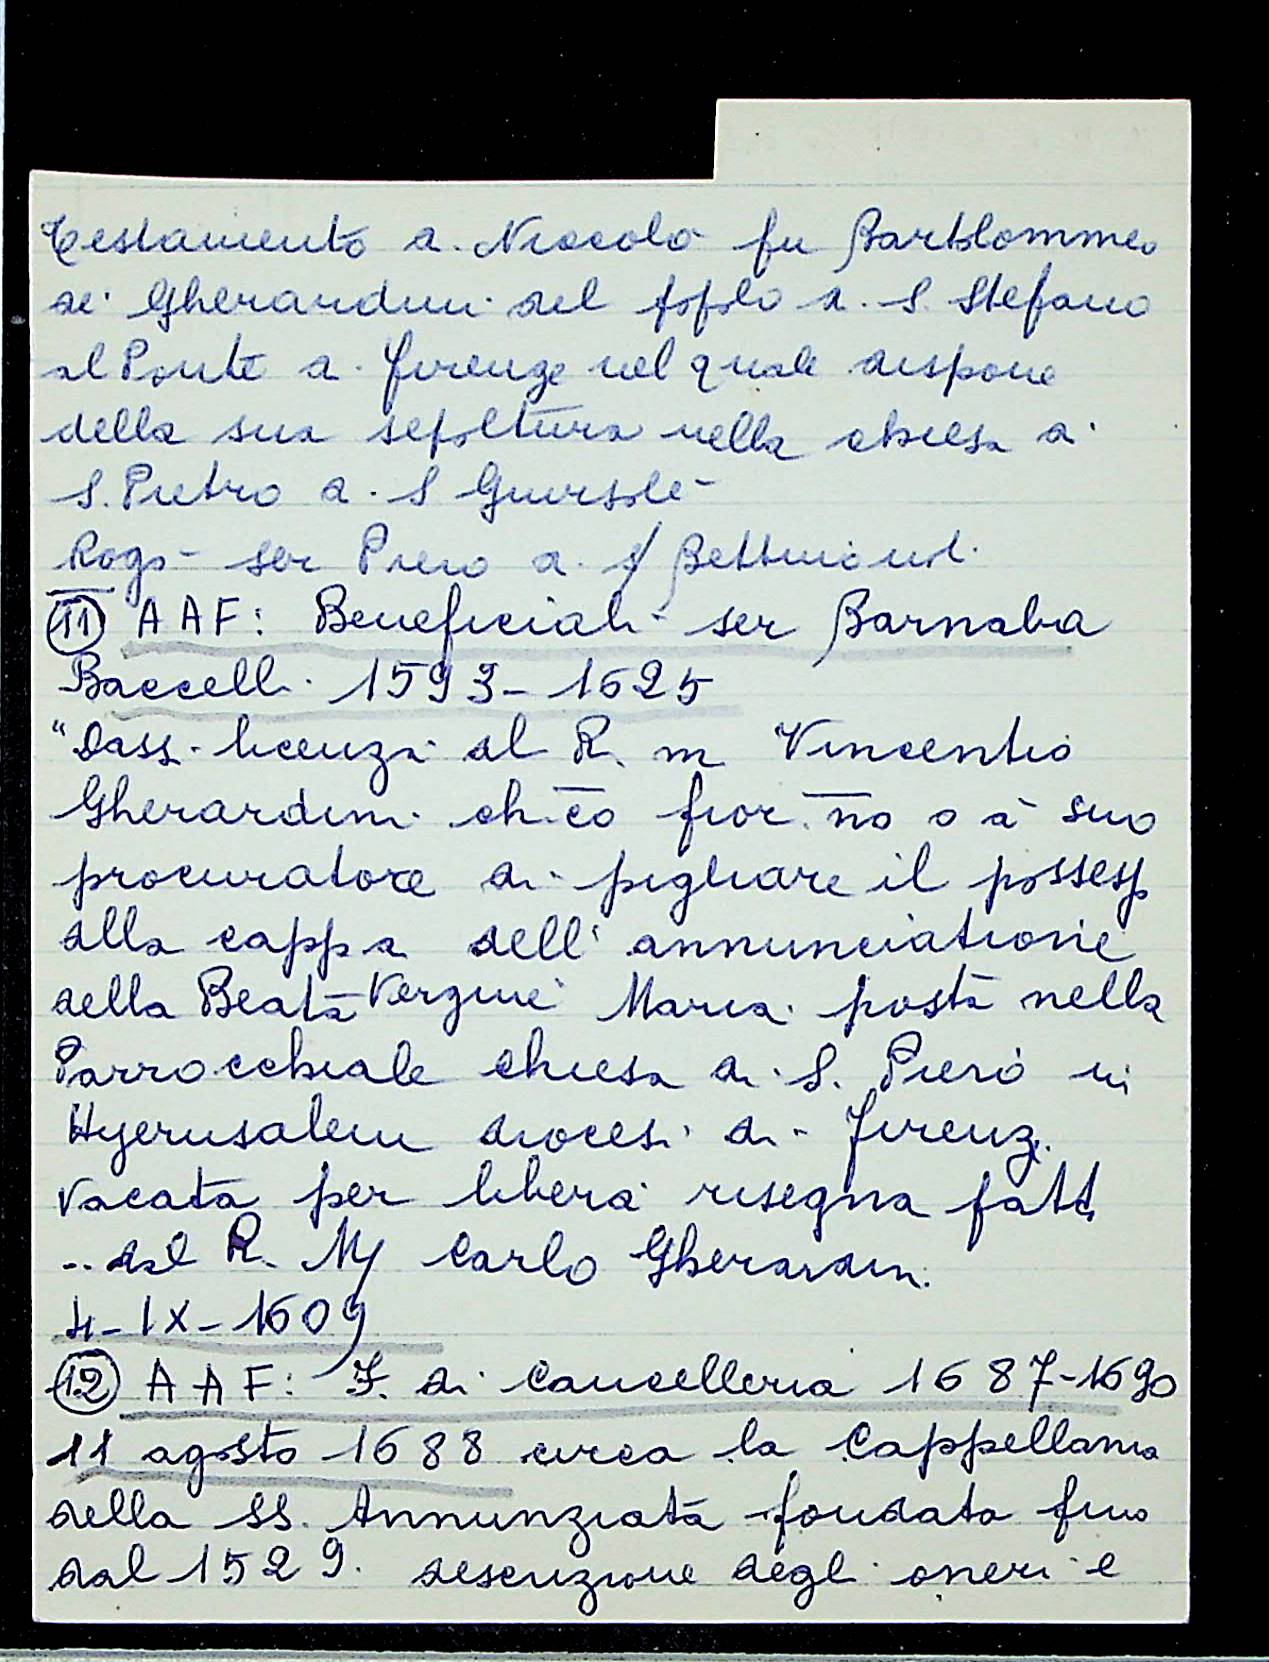 Testamento di Niccolò fu Bartolommeo
dei Gherardini del popolo di S. Stefano
al Ponte di Firenze nel quale dispone
della sua sepoltura nella chiesa di
S. Pietro a S
Rogò ser Piero di s/
11 AAF: Beneficiali ser Barnaba
Baccelli 1593-1625
"Dassi licenzi al R. m Vincentio
Gherardini ch.co fior.no o à suo
procuratore di pigliare il possesso
alla cappa dell'annunciatione
della Beata Vergine Maria posta nella
Parrocchiale chiesa di S. Piero in
Hyerusalem diocesi di Firenz.
vacata per libera risegna fatta
.. dal R. M Carlo Gherardini.
4-IX-1609
12 AAF: F. di Cancelleria 1687-1690
11 agosto 1688 circa la Cappellania
della SS. Annunziata fondata fino
dal 1529. descrizione degli oneri e